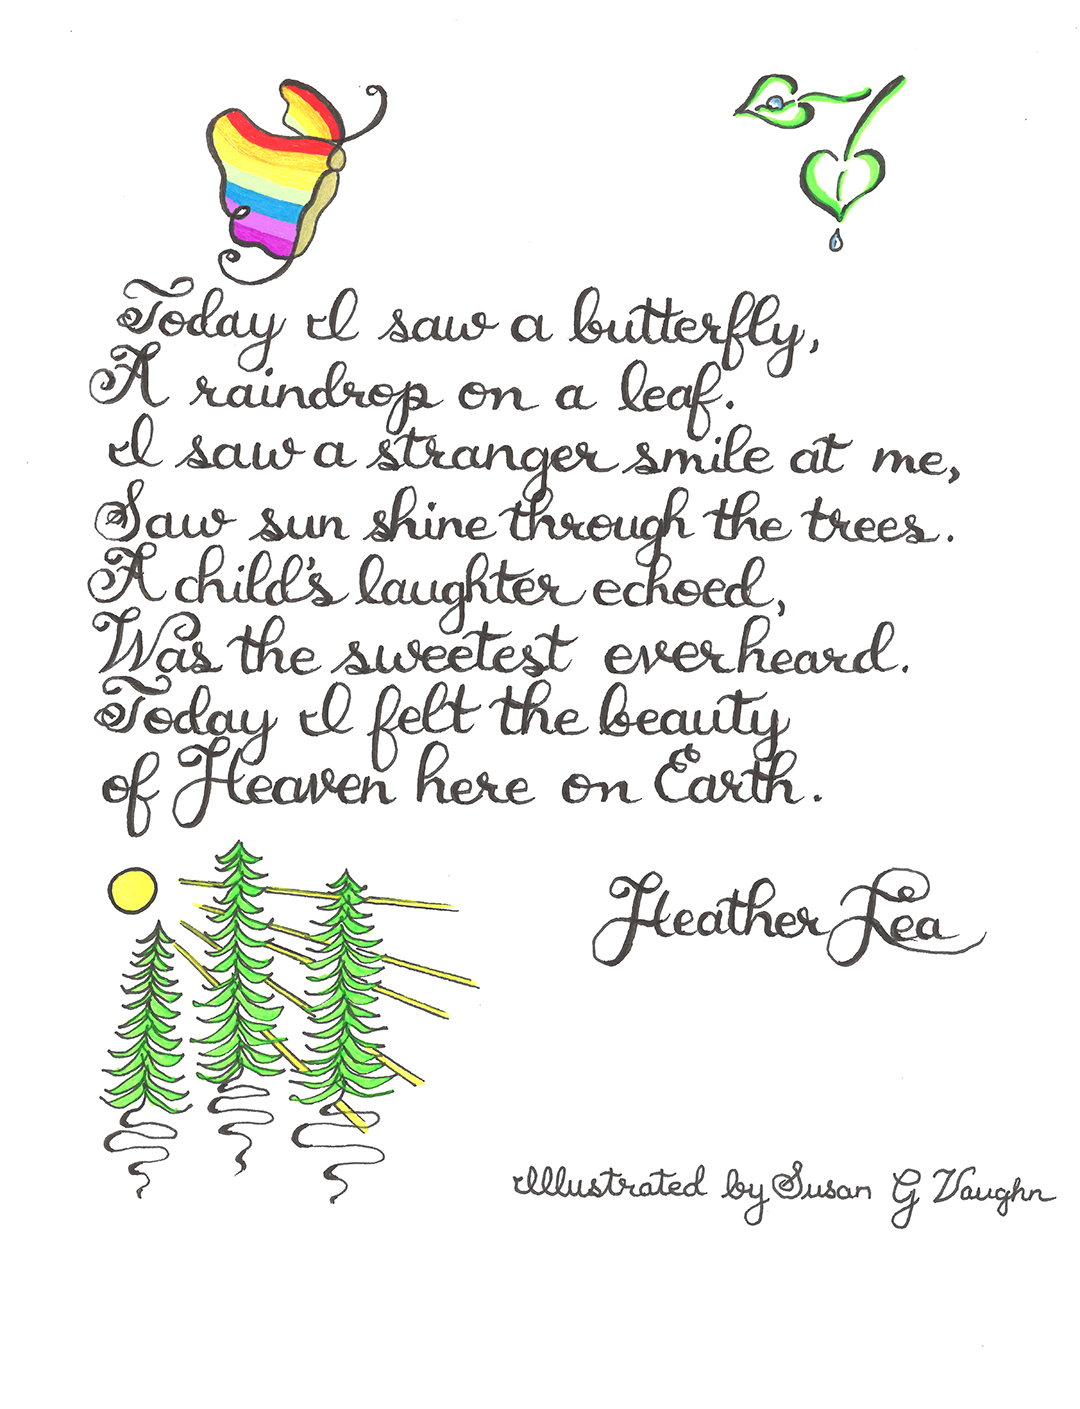 Today I saw a butterfly,
A raindrop on a leaf.
I saw a stranger smile at me,
Saw sun shine through the trees.
A child's laughter echoed,
Was the sweetest ever heard.
Today I felt the beauty
of Heaven here on Earth.
Heather Lea
Illustrated by Susan G Vaughn